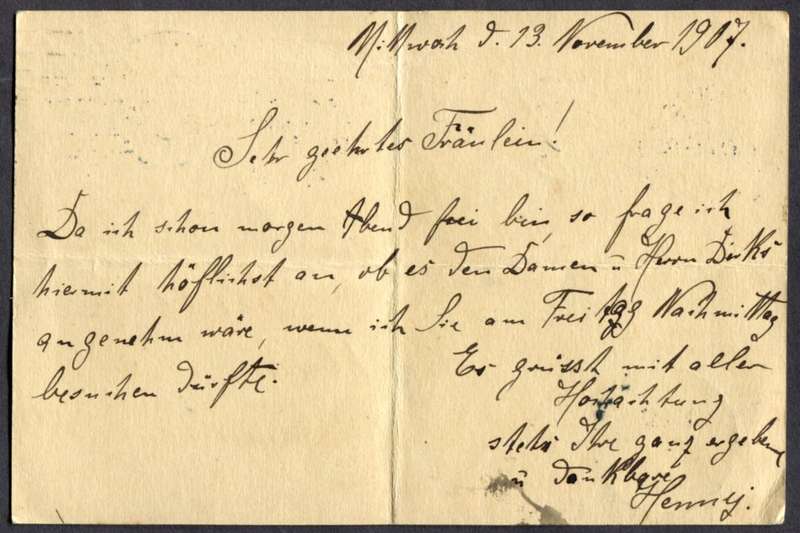 Mittwoch d. 13. November 1907.
Sehr geehrtes Fräulein!
Da ich schon morgen Abend frei bin, so frage ich
hiermit höflichst an, ob es den Damen u Herrn Dirks
angenehm wäre, wenn ich Sie am Freitag Nachmittag
besuchen dürfte.
Es grüsst mit aller
Hochachtung
stets Ihre ganz ergebene
u dankbare
Henny.